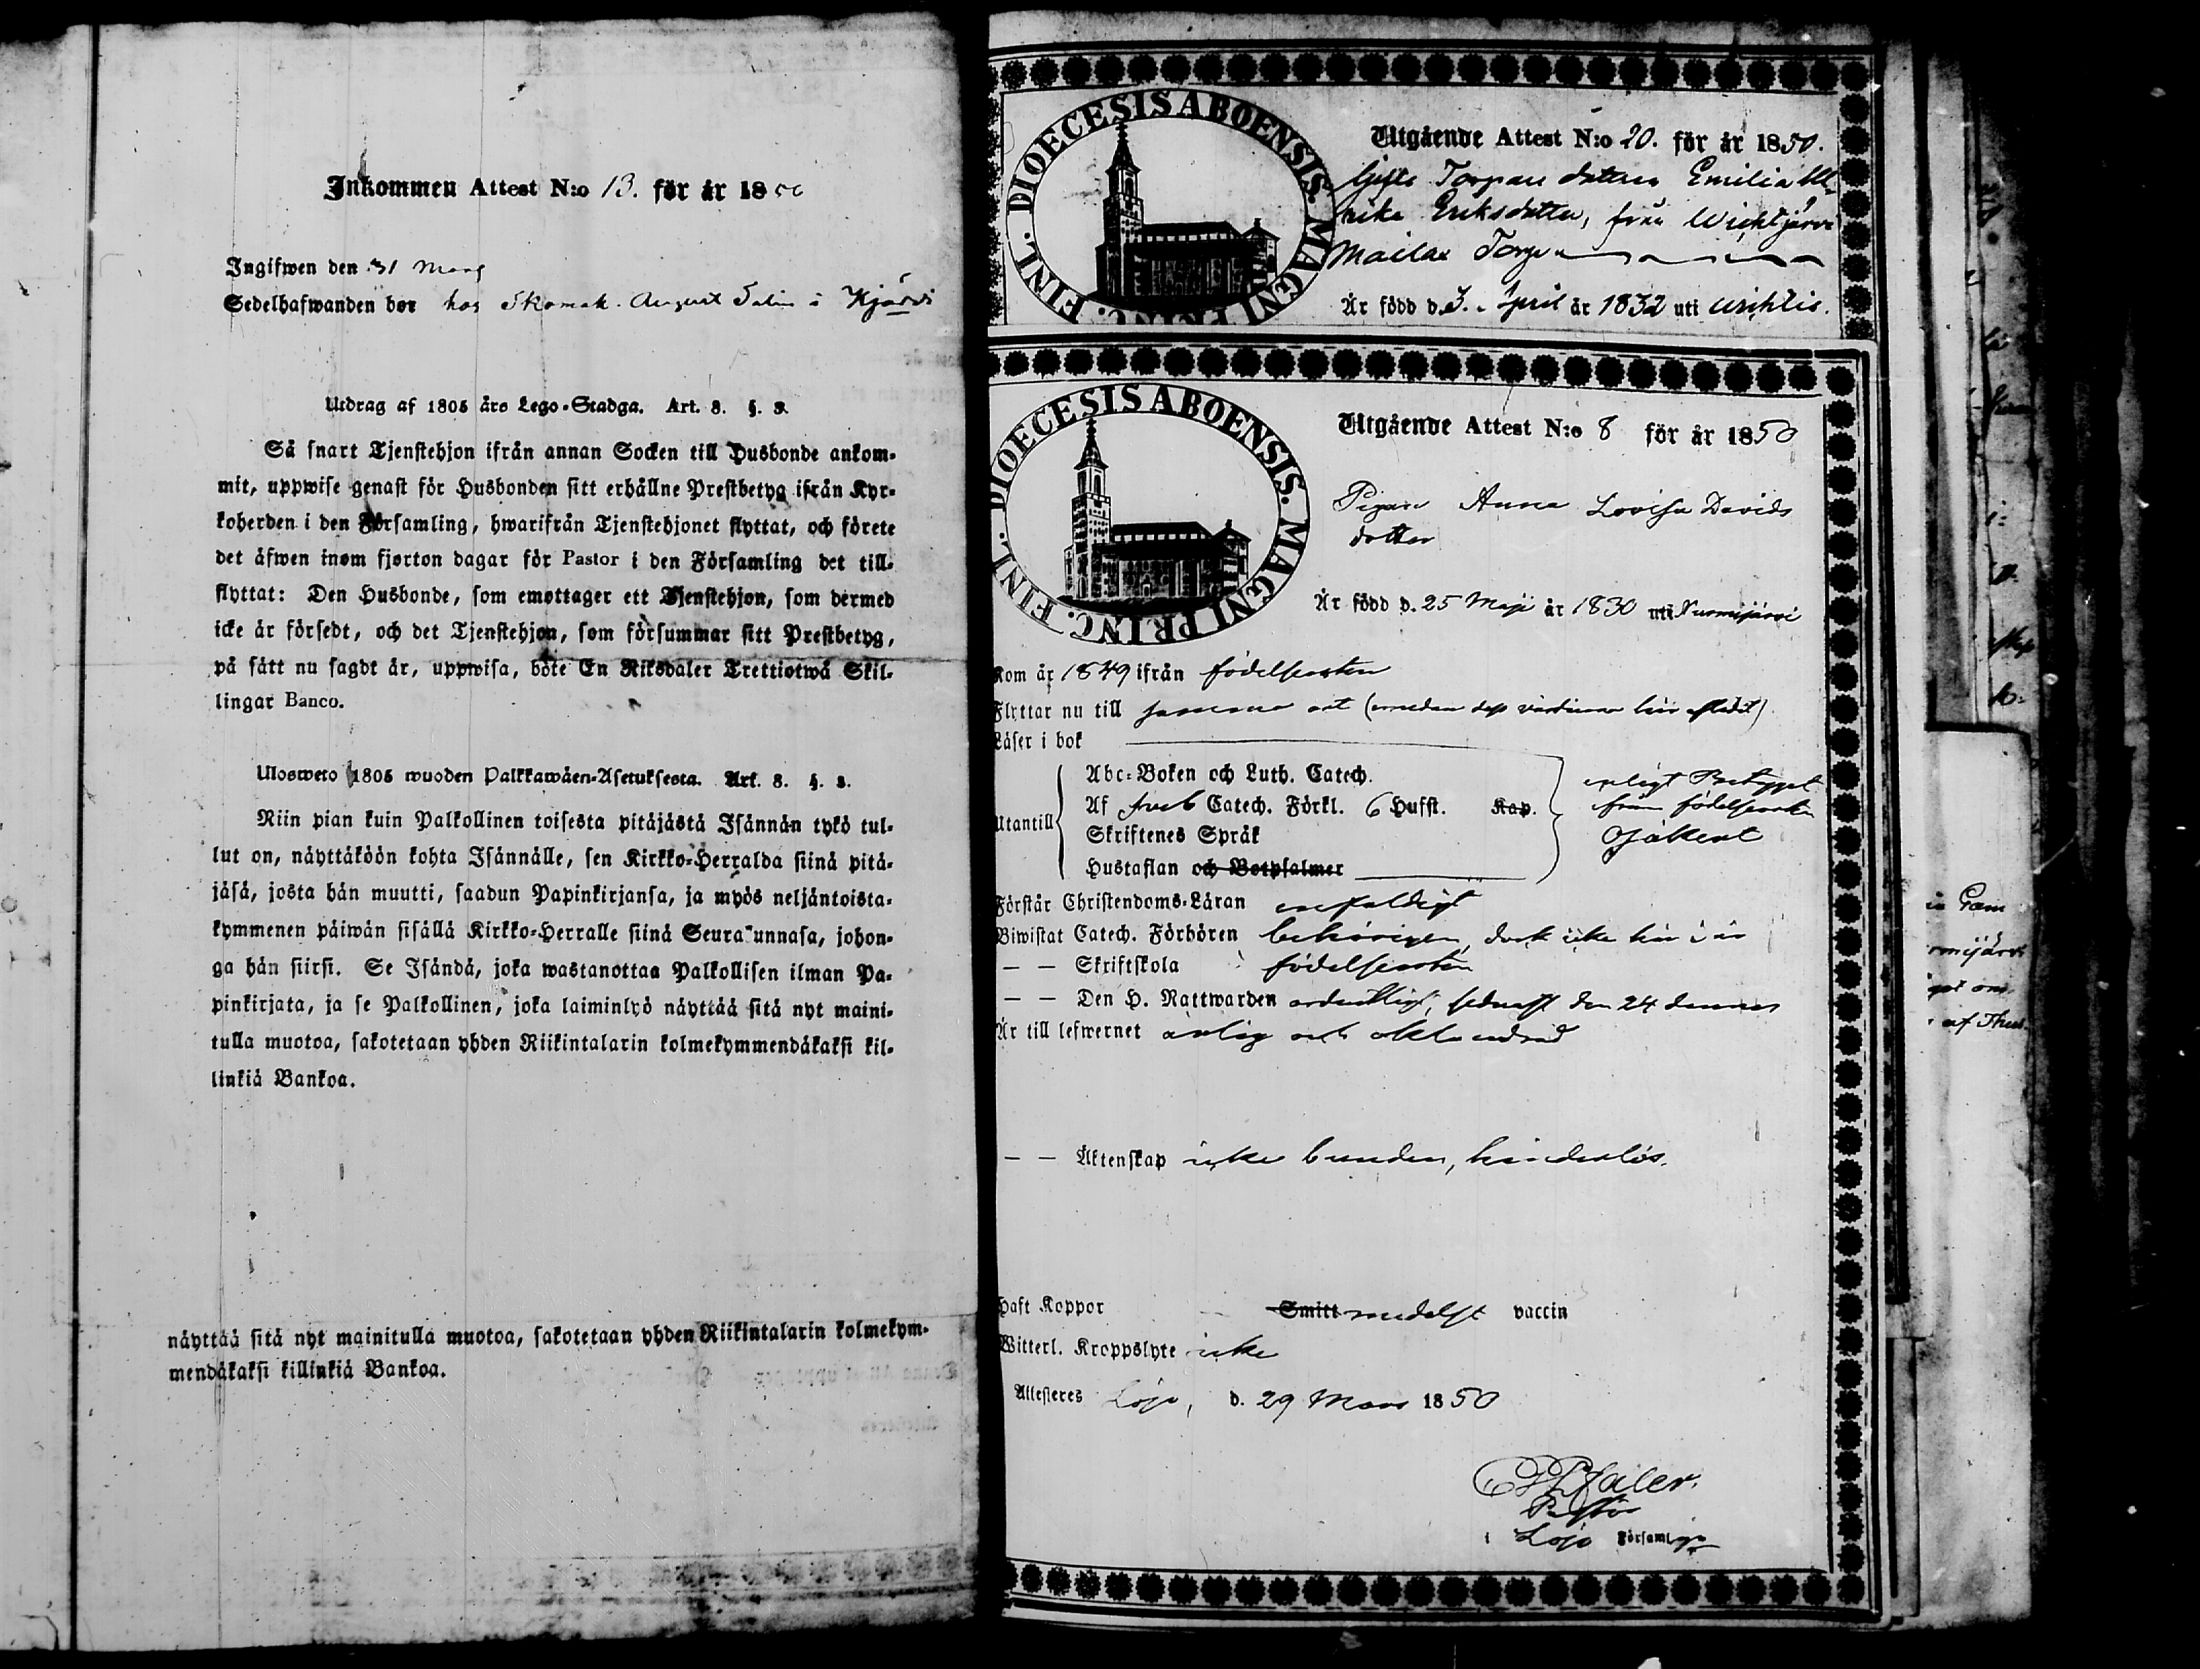 Inkommen Attest N:o 13. för år 1850
Ingifwen den 31 Mars
Sedelhafwanden bor hos Skomak. August Salin i Kjärvi
Utdrag af 1805 års Lego-Stadga. Art. 8. §. 3.
Så snart Tjenstehjon ifrån annan Socken till Husbonde ankom-
mit, uppwise genast för Husbonden sitt erhållne Prestbetyg ifrån Kyr-
koherden i den Församling, hwarifrån Tjenstehjonet flyttat, och förete
det äfwen inom fjorton dagar för Pastor i den Församling det till-
flyttat: Den Husbonde, som emottager ett Tjenstehjon, som dermed
icke är försedt, och det Tjenstehjon, som försummar sitt Prestbetyg,
på sätt nu sagdt är, uppwisa, böte En Riksdaler Trettiotwå Skil-
lingar Banco.
Ulosweto 1805 wuoden Palkkawäen-Asetuksesta. Art. 8. §. 3.
Niin pian kuin Palkollinen toisesta pitäjästä Isännän tykö tul-
lut on, näyttäköön kohta Isännälle, sen Kirkko-Herralda siinä pitä-
jäsä, josta hän muutti, saadun Papinkirjansa, ja myös neljäntoista-
kymmenen päiwän sisällä Kirkko-Herralle siinä Seurakunnasa, johon-
ga hän siirsi. Se Isändä, joka wastanottaa Palkollisen ilman Pa-
pinkirjata, ja se Palkollinen, joka laiminlyö näyttää sitä nyt maini-
tulla muotoa, sakotetaan yhden Riikintalarin kolmekymmendäkaksi kil-
linkiä Bankoa.
näyttää sitä nyt mainitulla muotoa, sakotetaan yhden Riikintalarin kolmekym-
mendäkaksi killinkiä Bankoa.
DIOECESIS ABOENSIS. MAGNI PRINC. FINL.
Utgående Attest N:o 20. för år 1850.
Gifta Torpare dottern Emilia Ul
rika Eriksdotter, från Wichtjärvi
Mailas Torp
Är född d. 3. April år 1832 uti Wichtis.
DIOECESIS ABOENSIS. MAGNI PRINC. FINL.
Utgående Attest N:o 8 för år 1850
Pigan Anna Lovisa Davids
dotter
Är född d. 25 Maji år 1830 uti Nurmijärvi
Kom år 1849 ifrån födelseorten
Flyttar nu till samma ort (emedan dess värdinna här aflidit)
Läser i bok
Abc-Boken och Luth. Catech.
enligt Betyget
Utantill
Af Sveb Catech. Förkl. 6 Hufst. Kap.
från födelseorten
Skriftenes Språk
Hustaflan och Botpsalmer
Förstår Christendoms-Läran enfaldigt
Biwistat Catech. Förhören behörigen, dock icke här i år
— — Skriftskola i födelseorten
— — Den H. Nattwarden ordentligt, sednast den 24 dennes
Är till lefwernet ärlig och oklandrad
— — Äktenskap icke bunden, hinderlös.
Haft Koppor Smitt medelst vaccin
Witterl. Kroppslyte icke
Attesteras Lojo, d. 29 Mars 1850
Pastor
i Lojo Församling